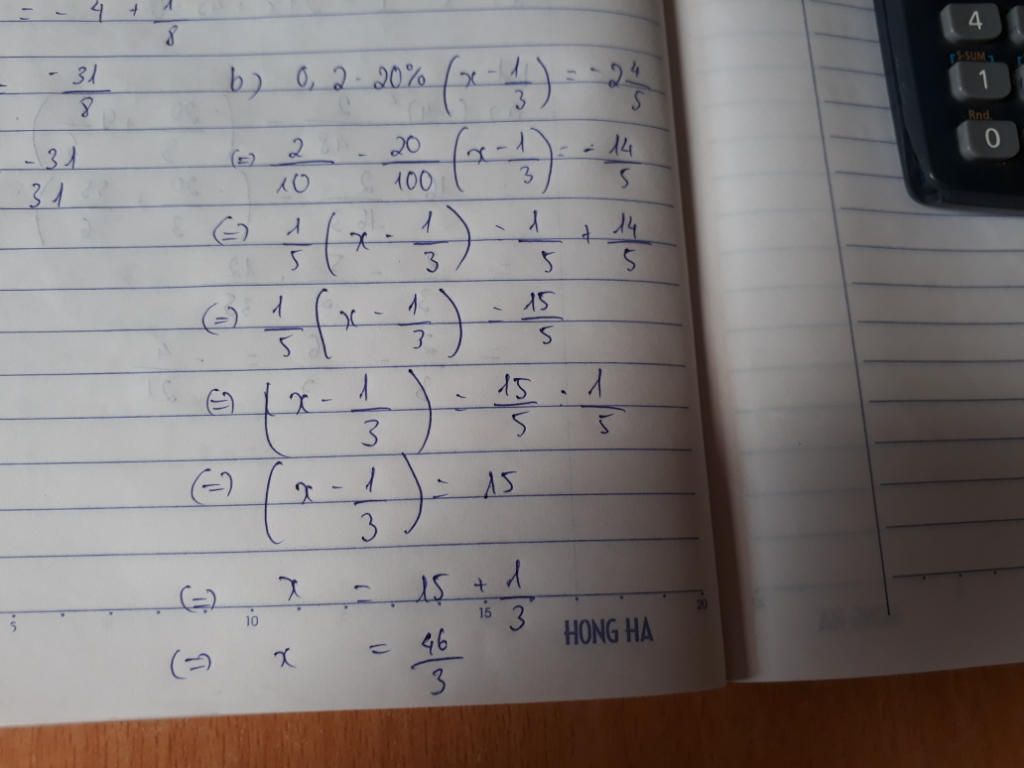 = - 4 + 1/8
= -31/8
-31
31
b) 0,2 - 20% (x - 1/3) = -2 4/5
(=) 2/10 - 20/100 (x - 1/3) = -14/5
(=) 1/5 (x - 1/3) = 1/5 + 14/5
(=) 1/5 (x - 1/3) = 15/5
(=) (x - 1/3) = 15/5 : 1/5
(=) (x - 1/3) = 15
(=) x = 15 + 1/3
(=) x = 46/3
5 10 15 20
HONG HA
4
S-SUM
1
Rnd
0